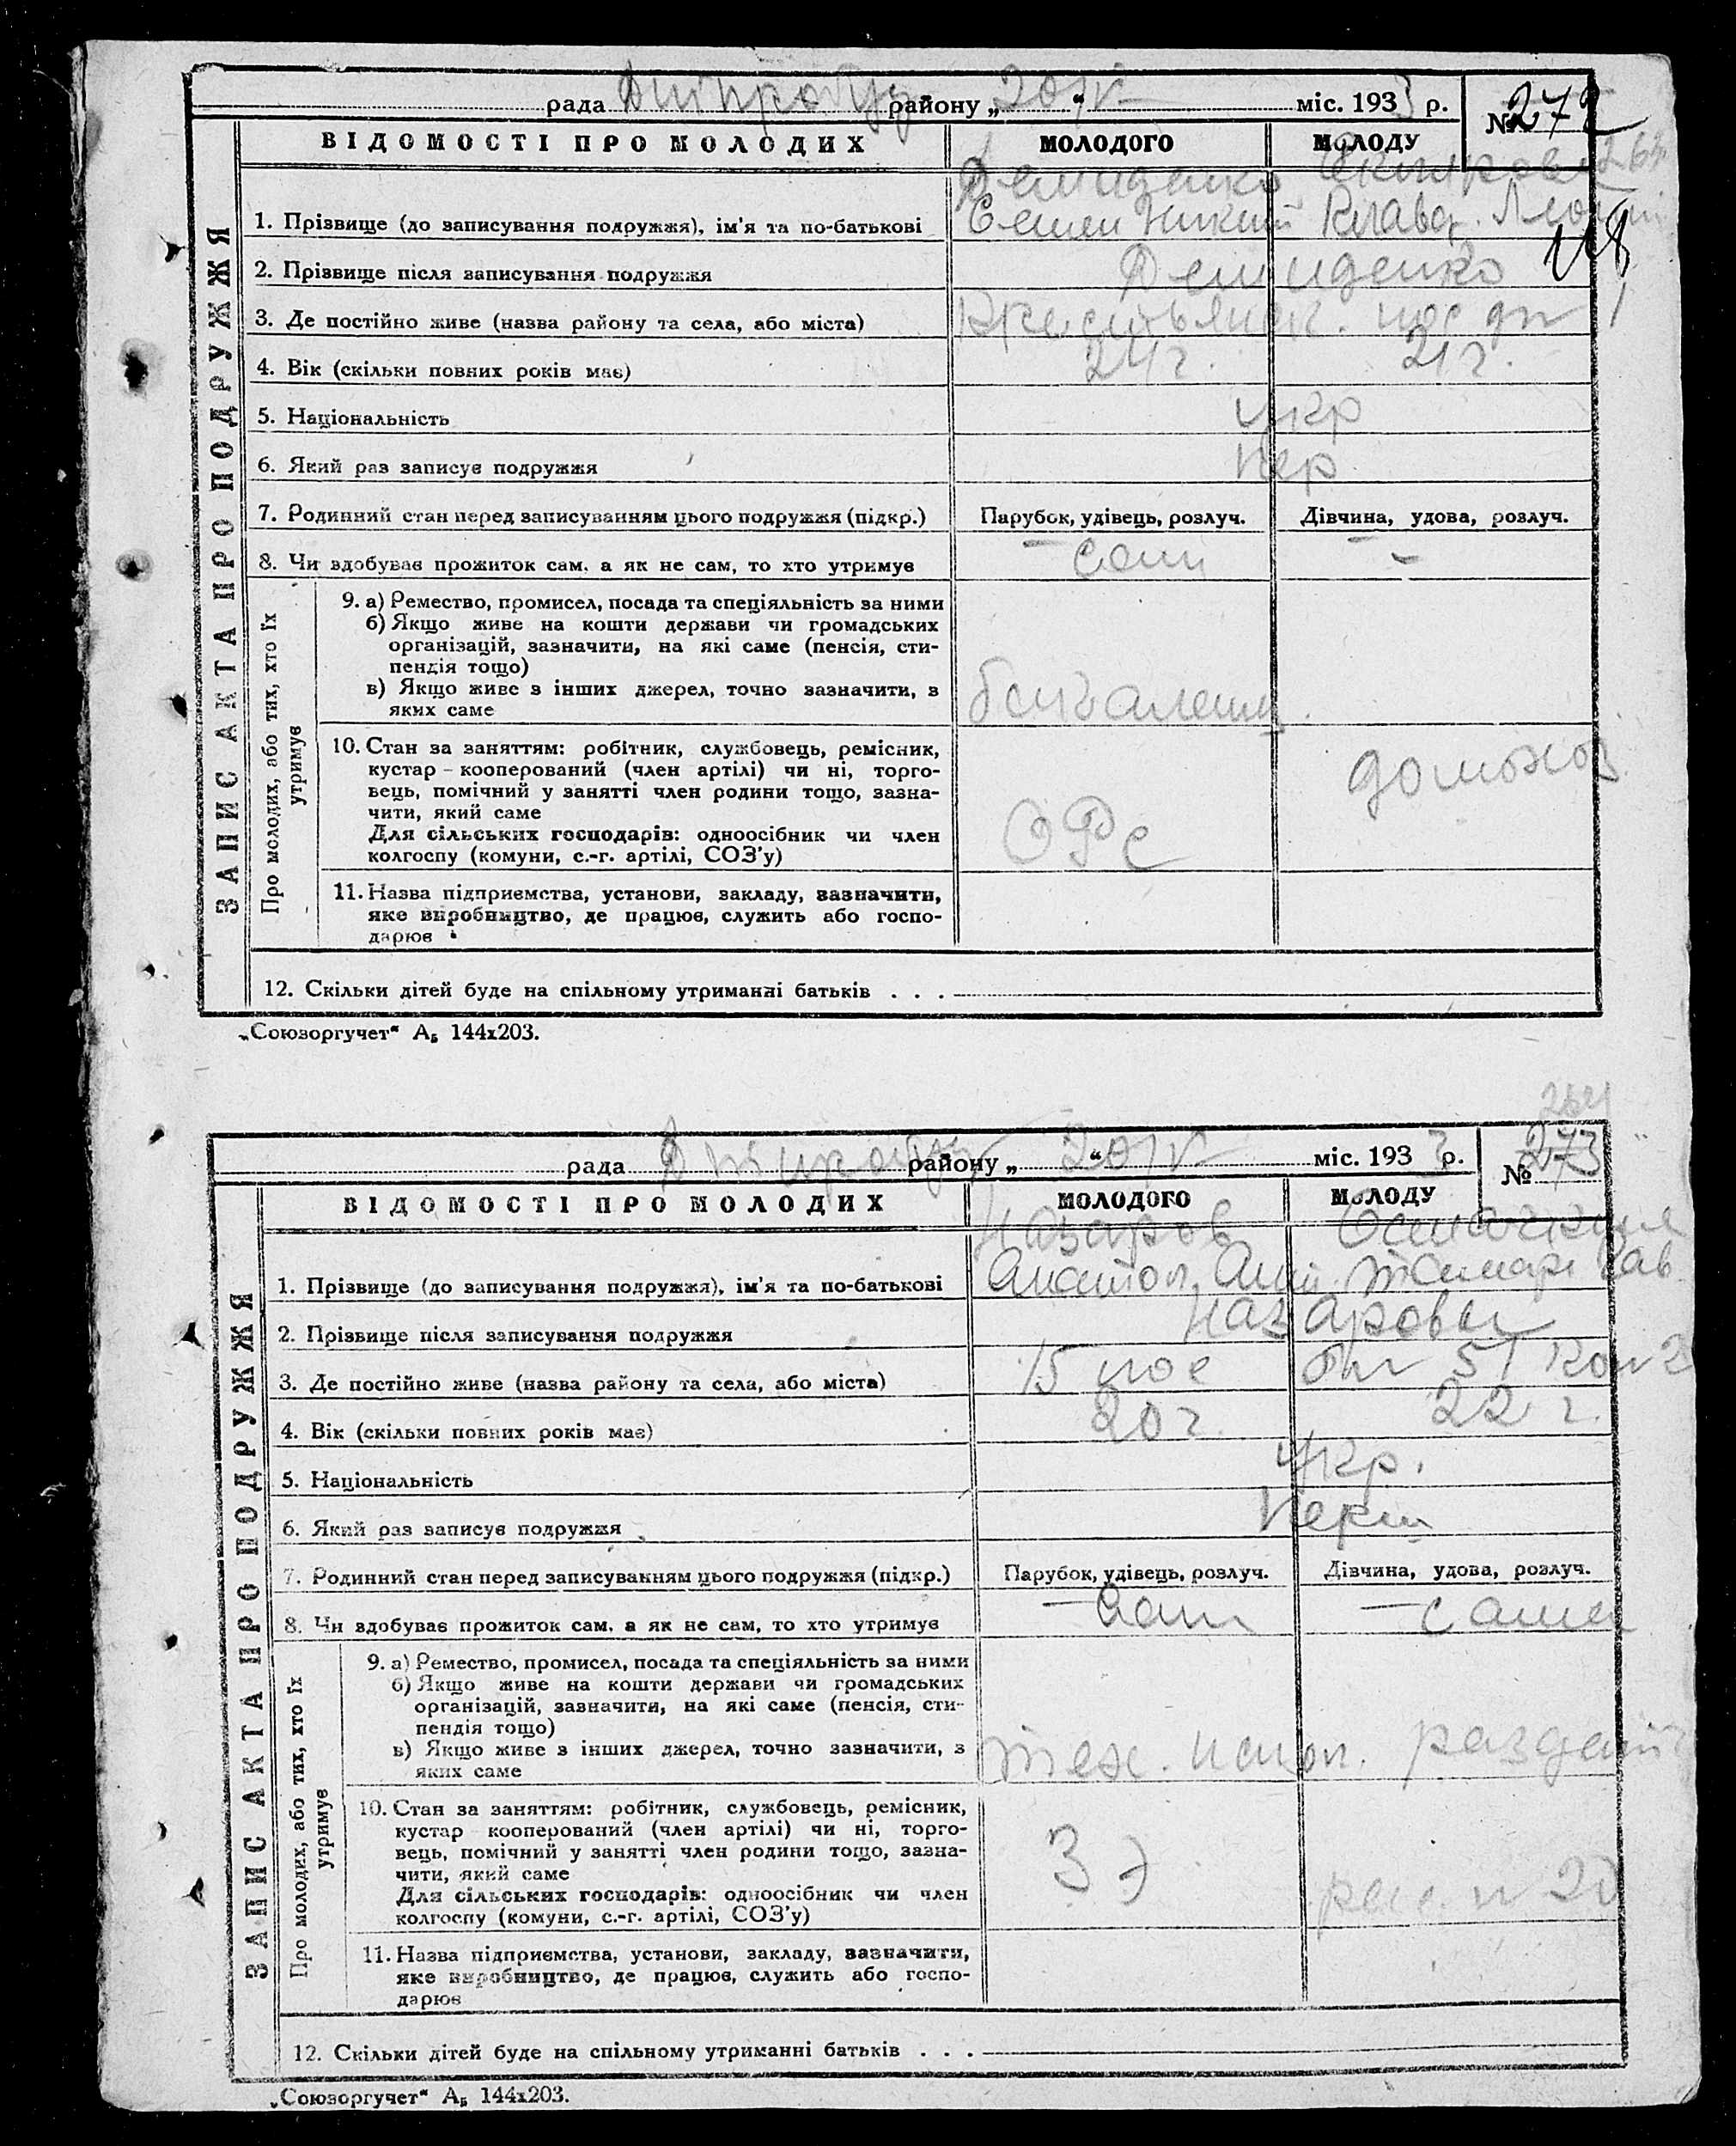 рада району „20/IV“ міс. 1933 р. № 272
ВІДОМОСТІ ПРО МОЛОДИХ МОЛОДОГО МОЛОДУ
Демиденко
1. Прізвище (до записування подружжя), ім'я та по-батькові Семен Никит Клавд.
2. Прізвище після записування подружжя Демиденко
3. Де постійно живе (назва району та села, або міста)
4. Вік (скільки повних років має) 24 г. 21 г.
5. Національність укр
6. Який раз записує подружжя пер
7. Родинний стан перед записуванням цього подружжя (підкр.) Парубок, удівець, розлуч. Дівчина, удова, розлуч.
8. Чи здобував прожиток сам, а як не сам, то хто утримує сам –
ЗАПИС АКТА ПРО ПОДРУЖЖЯ
Про молодих, або тих, хто їх утримує
9. а) Ремество, промисел, посада та спеціяльність за ними
б) Якщо живе на кошти держави чи громадських
організацій, зазначити, на які саме (пенсія, сти-
пендія тощо)
в) Якщо живе з інших джерел, точно зазначити, з
яких саме
10. Стан за заняттям: робітник, службовець, ремісник,
кустар – кооперований (член артілі) чи ні, торго-
вець, помічний у занятті член родини тощо, зазна-
чити, який саме домохоз.
Для сільських господарів: одноосібник чи член
колгоспу (комуни, с.-г. артілі, СОЗ'у)
11. Назва підприємства, установи, закладу, зазначити,
яке виробництво, де працює, служить або госпо-
дарює
12. Скільки дітей буде на спільному утриманні батьків . . .
„Союзоргучет“ А₅ 144х203.
264
рада району „20/IV“ міс. 1933 р. № 273
ВІДОМОСТІ ПРО МОЛОДИХ МОЛОДОГО МОЛОДУ
Назаров
1. Прізвище (до записування подружжя), ім'я та по-батькові Анатол. Тамар
2. Прізвище після записування подружжя Назаровы
3. Де постійно живе (назва району та села, або міста) 15 пос 51
4. Вік (скільки повних років має) 20 г. 22 г.
5. Національність Укр.
6. Який раз записує подружжя Перш
7. Родинний стан перед записуванням цього подружжя (підкр.) Парубок, удівець, розлуч. Дівчина, удова, розлуч.
8. Чи здобуває прожиток сам, а як не сам, то хто утримує сам сама
ЗАПИС АКТА ПРО ПОДРУЖЖЯ
Про молодих, або тих, хто їх утримує
9. а) Ремество, промисел, посада та спеціяльність за ними
б) Якщо живе на кошти держави чи громадських
організацій, зазначити, на які саме (пенсія, сти-
пендія тощо)
в) Якщо живе з інших джерел, точно зазначити, з
яких саме тех.
10. Стан за заняттям: робітник, службовець, ремісник,
кустар кооперований (член артілі) чи ні, торго-
вець, помічний у занятті член родини тощо, зазна-
чити, який саме
Для сільських господарів: одноосібник чи член
колгоспу (комуни, с.-г. артілі, СОЗ'у)
11. Назва підприємства, установи, закладу, зазначити,
яке виробництво, де працює, служить або госпо-
дарює
12. Скільки дітей буде на спільному утриманні батьків . . .
„Союзоргучет“ А₅ 144х203.